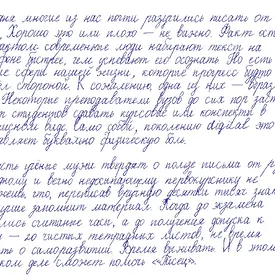 дня многие из нас почти разучились писать от
. Хорошо это или плохо — не важно. Факт ост
современные люди набирают текст на
фоне быстрее, чем успевают его осознать. Но есть
ые сферы нашей жизни, которые прогресс будто
л стороной. К сожалению, одна из них — образ
. Некоторые преподаватели вузов до сих пор заст
т студентов сдавать курсовые или конспекты в
писном виде. Само собой, поколению digital это
авляет буквально физическую боль.
сть учёные мужи твердят о пользе письма от ру
ному и вечно недосыпающему первокурснику не
что, переписав вручную десятки тысяч знак
учше запомнит материал. Когда до экзамена
лись считаные часы, а до получения допуска к
— 20 чистых тетрадных листов, не время
ть о саморазвитии. Время выживать. И в этом
ком деле сможет помочь «Писец».